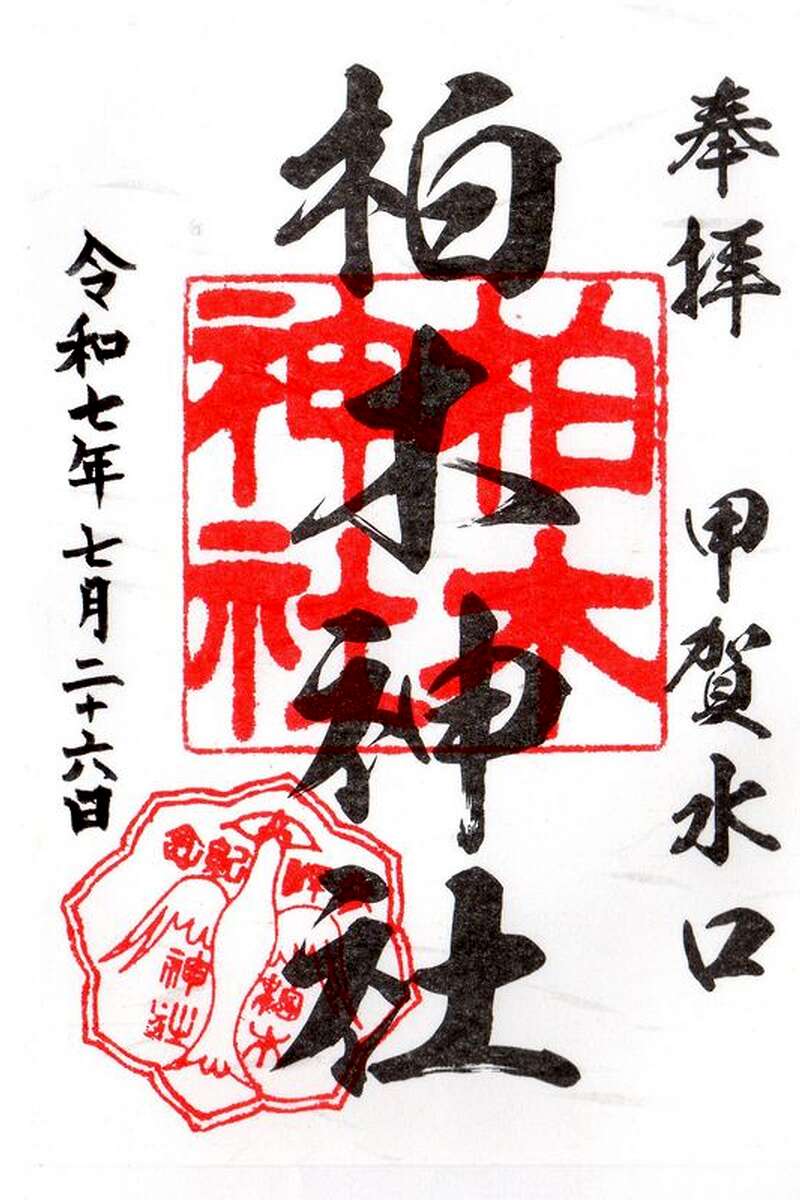 奉拝 甲賀水口
柏木神社
令和七年七月二十六日
柏木
神社
記念
柏木
神社